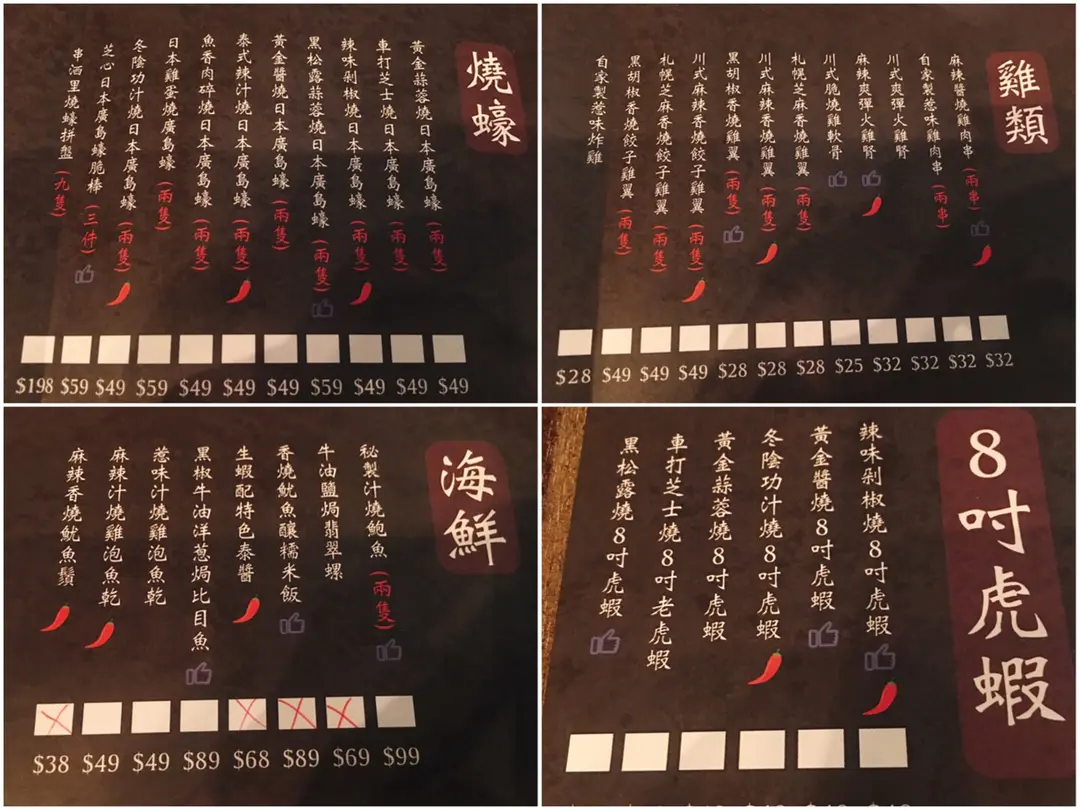 燒蠔
黃金蒜蓉燒日本廣島蠔(兩隻)
車打芝士燒日本廣島蠔(兩隻)
辣味剁椒燒日本廣島蠔(兩隻)
黑松露蒜蓉燒日本廣島蠔(兩隻)
黃金醬燒日本廣島蠔(兩隻)
泰式辣汁燒日本廣島蠔(兩隻)
魚香肉碎燒日本廣島蠔(兩隻)
日本雞蛋燒廣島蠔(兩隻)
冬陰功汁燒日本廣島蠔(兩隻)
芝心日本廣島蠔脆棒(三件)
串洒里燒蠔拼盤(九隻)
$198 $59 $49 $59 $49 $49 $49 $59 $49 $49 $49
雞類
麻辣醬燒雞肉串(兩串)
自家製惹味雞肉串(兩串)
川式爽彈火雞腎
麻辣爽彈火雞腎
川式脆燒雞軟骨
札幌芝麻香燒雞翼(兩隻)
川式麻辣香燒雞翼(兩隻)
黑胡椒香燒雞翼(兩隻)
川式麻辣香燒餃子雞翼(兩隻)
札幌芝麻香燒餃子雞翼(兩隻)
黑胡椒香燒餃子雞翼(兩隻)
自家製惹味炸雞
$28 $49 $49 $49 $28 $28 $28 $25 $32 $32 $32 $32
海鮮
秘製汁燒鮑魚(兩隻)
牛油鹽焗翡翠螺
香燒魷魚釀糯米飯
生蝦配特色泰醬
黑椒牛油洋蔥焗比目魚
惹味汁燒雞泡魚乾
麻辣汁燒雞泡魚乾
麻辣香燒魷魚鬚
$38 $49 $49 $89 $68 $89 $69 $99
8吋虎蝦
辣味剁椒燒8吋虎蝦
黃金醬燒8吋虎蝦
冬陰功汁燒8吋虎蝦
黃金蒜蓉燒8吋虎蝦
車打芝士燒8吋老虎蝦
黑松露燒8吋虎蝦